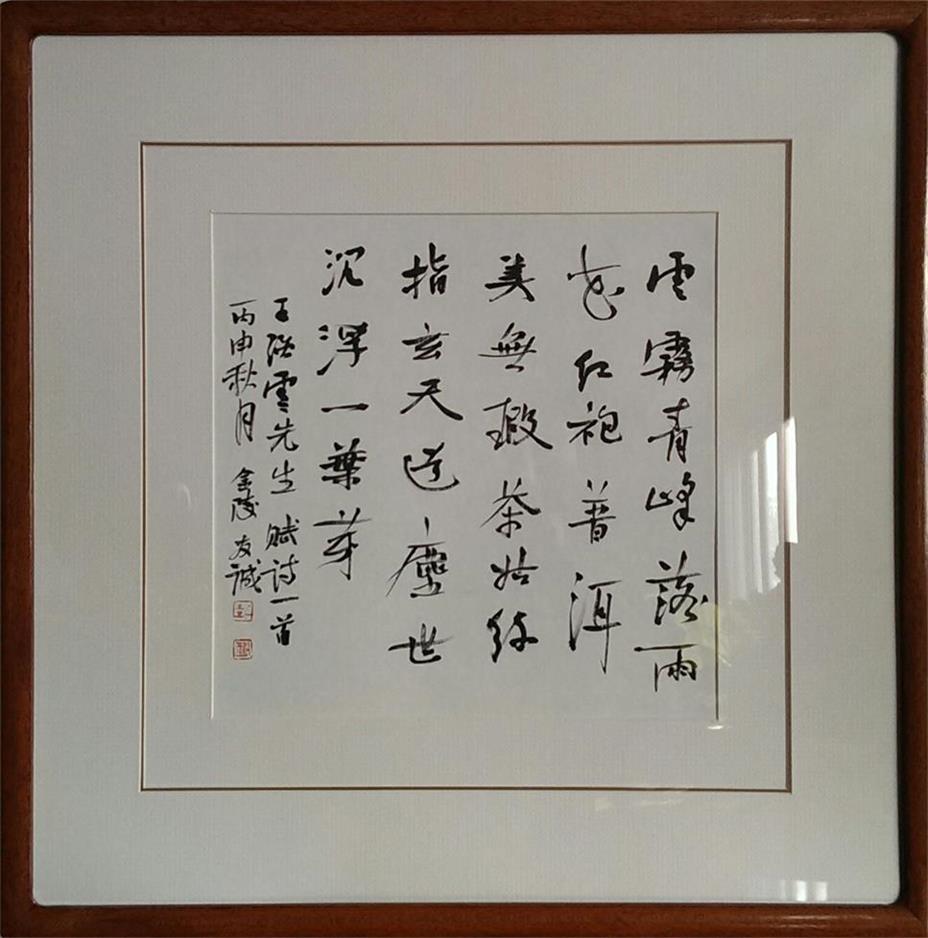 雲霧青峰落雨
花红袍普洱
美無瑕茶姑纤
指玄天道塵世
沉浮一葉芽
王雲先生賦诗一首
丙申秋月 金陵友誠